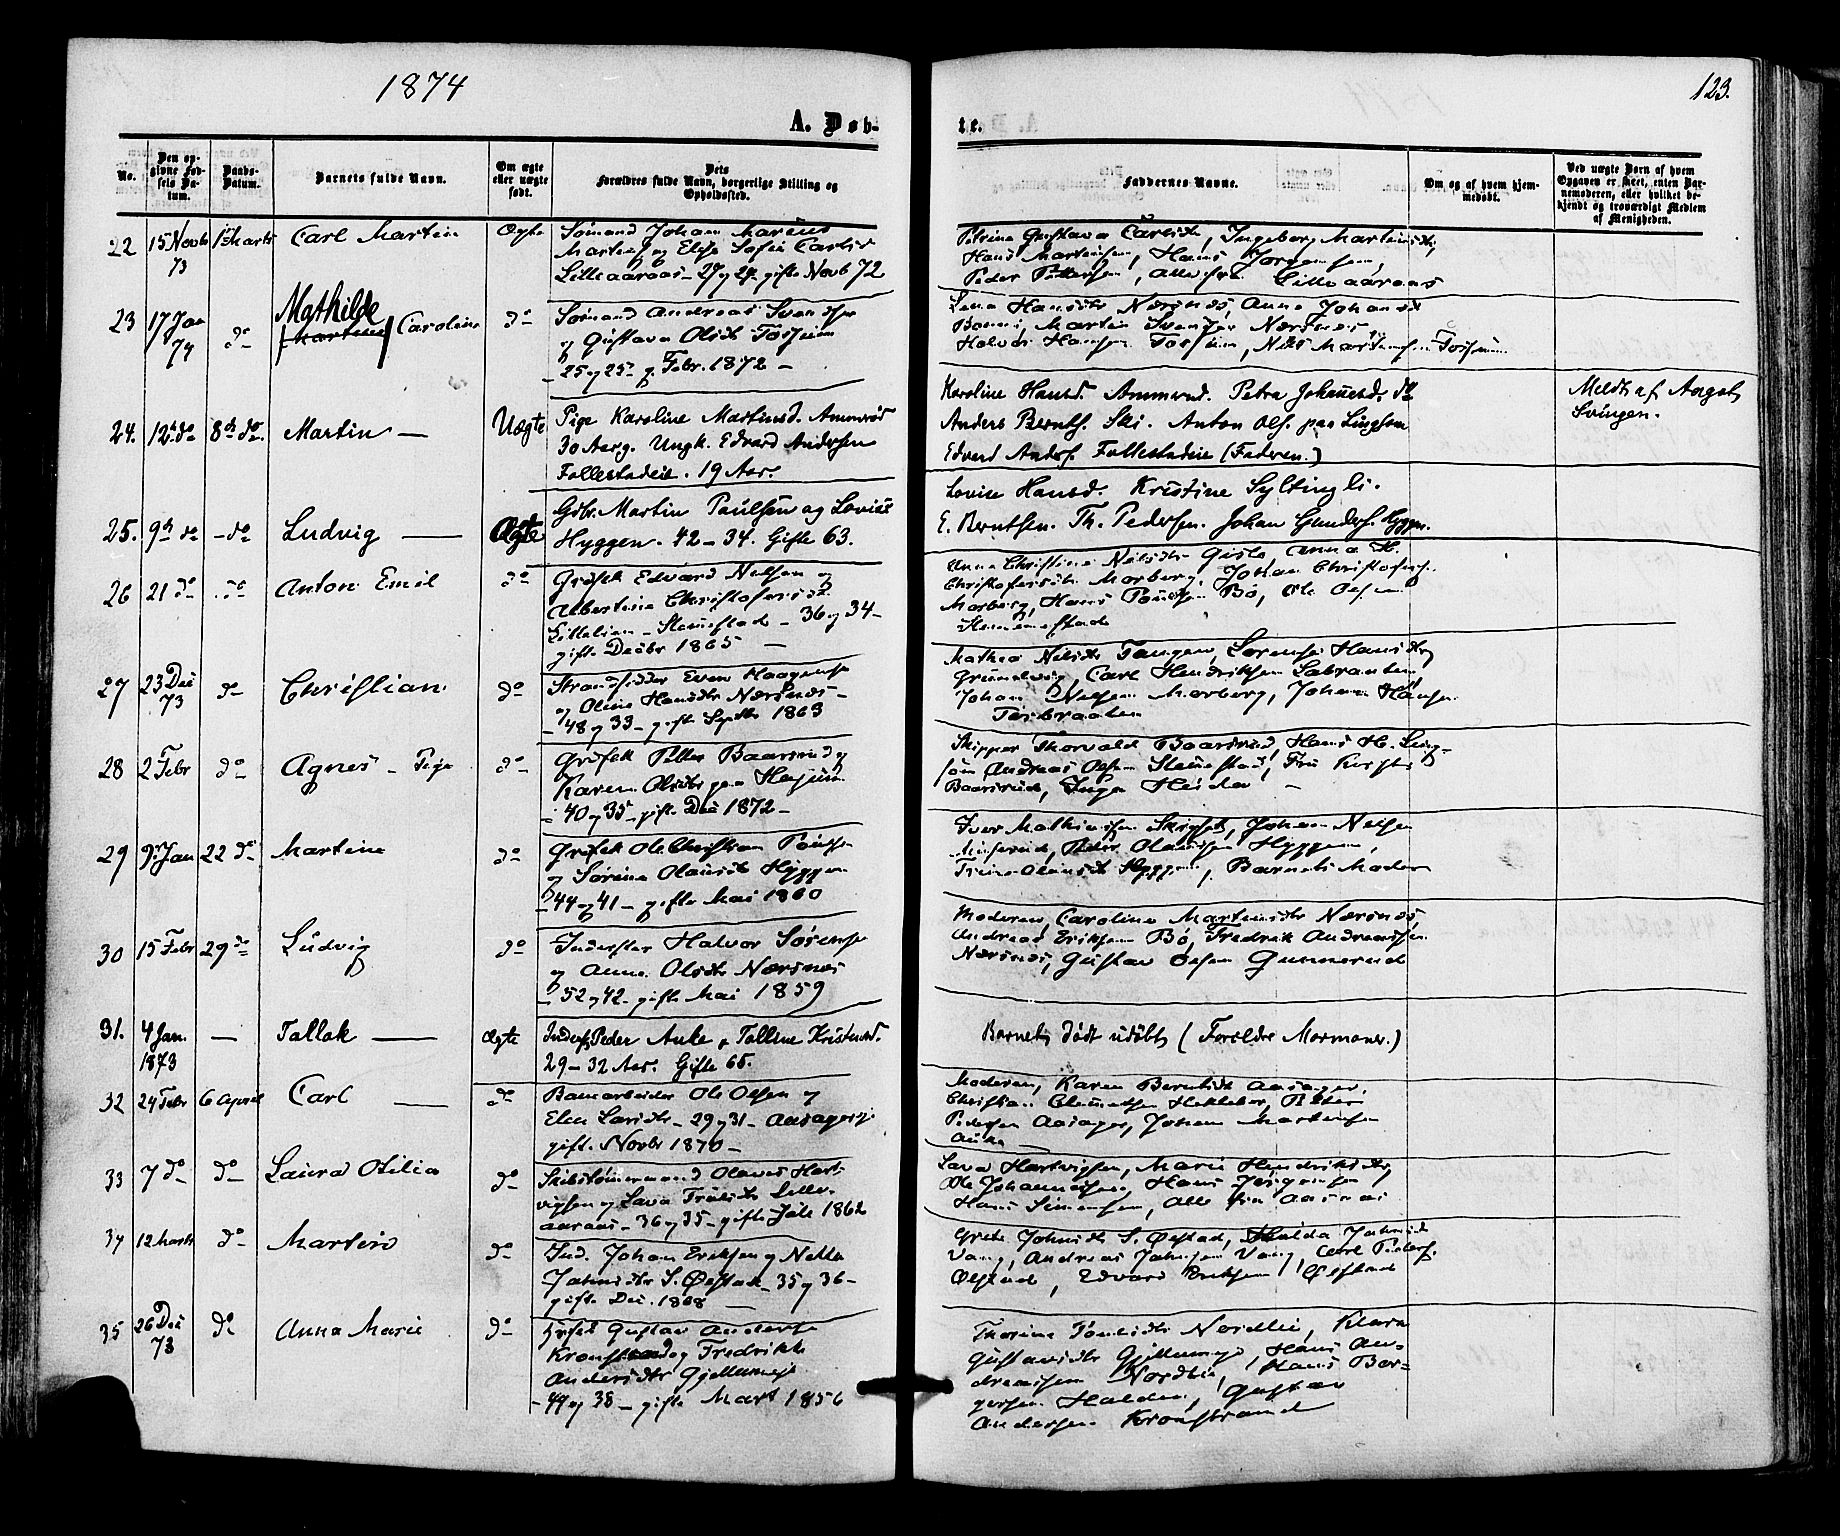 1874
123.
A. Døb-
te.
No.
Den op-
givne Fød-
sels Da-
tum.
Daabs-
Datum.
Barnets fulde Navn.
Om ægte
eller uægte
født.
Dets
Forældres fulde Navn, borgerlige Stilling og
Opholdssted.
Faddernes Navne.
Om og af hvem hjem-
medøbt.
Ved uægte Børn af hvem
Opgaven er skeet, enten Bar-
nemoderen, eller hvilket be-
kjendt og troværdigt Medlem
af Menigheden.
22 15 Novb 73 1ste Marts Carl Martin Ægte
Sømand Johan Marius
Martins. og Elise Sofie Carlsd
Lilleaaraas 27 og 24 gifte Novb 72
Petrine Gustava Carlsdtr, Ingeborg Martinsdtr,
Hans Martinsen, Hans Jørgensen,
Peder Pettersen, alle fra Lilleaaraas
23 17 Jan 74 do Mathilde Martine Caroline do
Sømand Andreas Svendsen
og Gustava Olsdtr Torsum
25 og 25 g. Febr. 1872
Lena Hansdtr Nærsnes, Anne Johansd
Martin Svendsen Nærsnes
Halvor Hansen Torsum, Nils Martinsen Torsum
24. 12 do 8de do Martin Uægte
Pige Karoline Martinsd. Ammerud
30 Aarg. Ungk. Edvard Andersen
Follestadeie. 19 Aar.
Karoline Hansd. Ammerud. Petra Johannesd. do
Anders Bernts. Ski. Anton Ols. paa Lingsom
Edvard Anders. Follestadeie (Faderen.)
Meldt af August
Svingen.
25. 9de do do Ludvig Ægte
Gdbr. Martin Paulsen og Lovise
Hyggen. 42 - 34. Gifte 63.
Lovise Hansd. Kristine Syltingli.
E. Berntsen. Th. Pedersen. Johan Gunders. Hyggen.
26 21 do do Anton Emil do
Grdfolk Edvard Nelsen og
Albertine Christofersdtr
Littelien Slemestad 36 og 34
gifte Decbr 1865
Anne Christine Nilsdtr Gisle, Anna H.
Christofersdtr Morberg, Johan Christofers.
Morberg, Hans Poulsen Bø, Ole Olsen
Slemmestad
27 23 Dec 73 do Christian do
Strandsidder Even Haagensen
og Oline Hansdtr Nærsnes
48 og 33 gifte Septbr 1863
Mathea Nilsdtr Tangen, Sørense Hansdtr
Grundvig, Carl Hendriksen Sabraaten
Johan Nelsen Morberg, Johan Hansen
Torbraaten
28 2 Febr do Agnes Pige do
Grdfolk Petter Baarsrud og
Karen Olsdtr paa Høvjum
40 og 35 gifte Dec 1872
Skipper Thorvald Baarsrud, Hans H. Ling-
som Andreas Olsen Slemmestad, Fru Kirsti
Baarsrud, Inga Heide
29 9 Jan 22 do Martine do
Grdfolk Ole Christian Poulsen
og Sørine Olausdtr Hyggen
44 og 41 gifte Mai 1860
Iver Mathiesen Skigset, Johan Nelsen
Peder Olaussen Hyggen,
Trine Olausdtr Hyggen, Barnets Moder
30 15 Febr 29 do Ludvig do
Inderster Halvor Sørensen
og Anne Olsdtr Nærsnes
52 og 42 gifte Mai 1859
Moderen, Caroline Martinsdtr Nærsnes
Andreas Eriksen Bø, Fredrik Andreassen
Nærsnes, Gustav Olsen Gunnerud
31. 4 Jan. 1873 — Tollak Ægte
Inders. Peder Auke & Talline Kristensd.
29 - 32 Aar. Gifte 65.
Barnet dødt udøbt (Foreldre Mormoner.)
32 24 Febr 6 April Carl do
Banearbeider Ole Olsen og
Elen Larsdtr 29 og 31 Aasagereje
gift. Novbr 1870
Moderen, Karen Berntsdtr Aasager,
Christian Clemetsen Hekleberg, Petter
Pedersen Aasager, Johan Mortensen
Auke
33 7 do do Laura Otilia do
Skibstømmermand Olaves Hart-
vigsen og Lava Trulsdtr Lille-
aaraas 36 og 35 gifte Juli 1862
Lava Hartvigsen, Marie Hendriksdtr,
Ole Johannessen, Hans Jørgensen
Hans Simensen, Alle fra Aaraas
34 12 Marts do Martin do
Ind. Johan Eriksen og Nella
Johnsdtr S. Ølstad 35 og 36
gifte Dec. 1868
Grete Johnsdtr S. Ølstad, Hulda Johnsdtr
Vang, Andreas Johnsen Vang, Carl Peders.
Ølstad, Edvard Eriksen Ølstad
35 26 Dec 73 do Anna Marie do
Husfolk Gustav Anders.
Kronstrand og Fredrikke
Andersdtr Gjellumeje
44 og 38 gifte Mart 1856
Thorine Poulsdtr Nordlie, Klara
Gustavsdtr Gjellumeje, Hans An-
dreassen Nordlie, Hans Bør-
gersen Halden, Gustav
Andersen Kronstrand